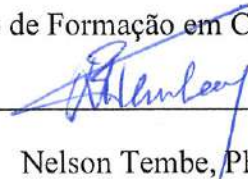 de Formação em C
Nelson Tembe, Ph